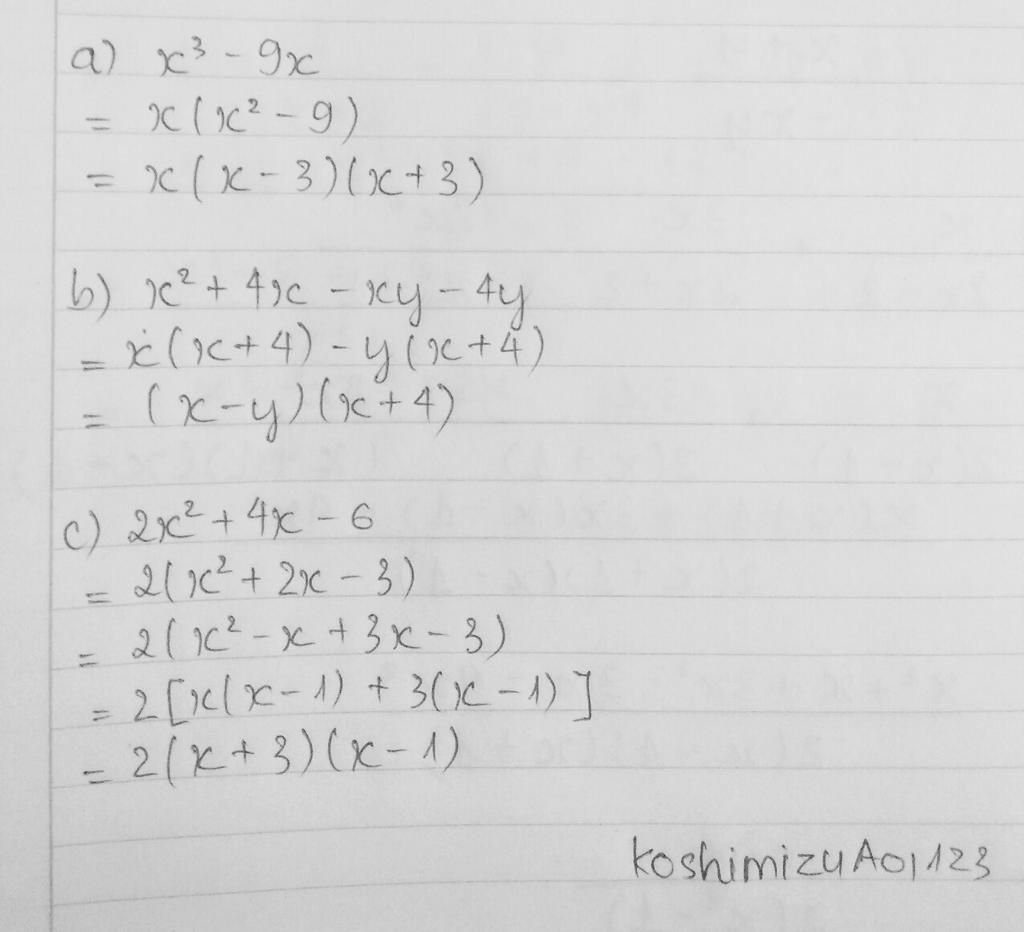 a) x³ - 9x
= x(x² - 9)
= x(x - 3)(x + 3)
b) x² + 4x - xy - 4y
= x(x + 4) - y(x + 4)
= (x - y)(x + 4)
c) 2x² + 4x - 6
= 2(x² + 2x - 3)
= 2(x² - x + 3x - 3)
= 2[x(x - 1) + 3(x - 1)]
= 2(x + 3)(x - 1)
KoshimizuAoi123